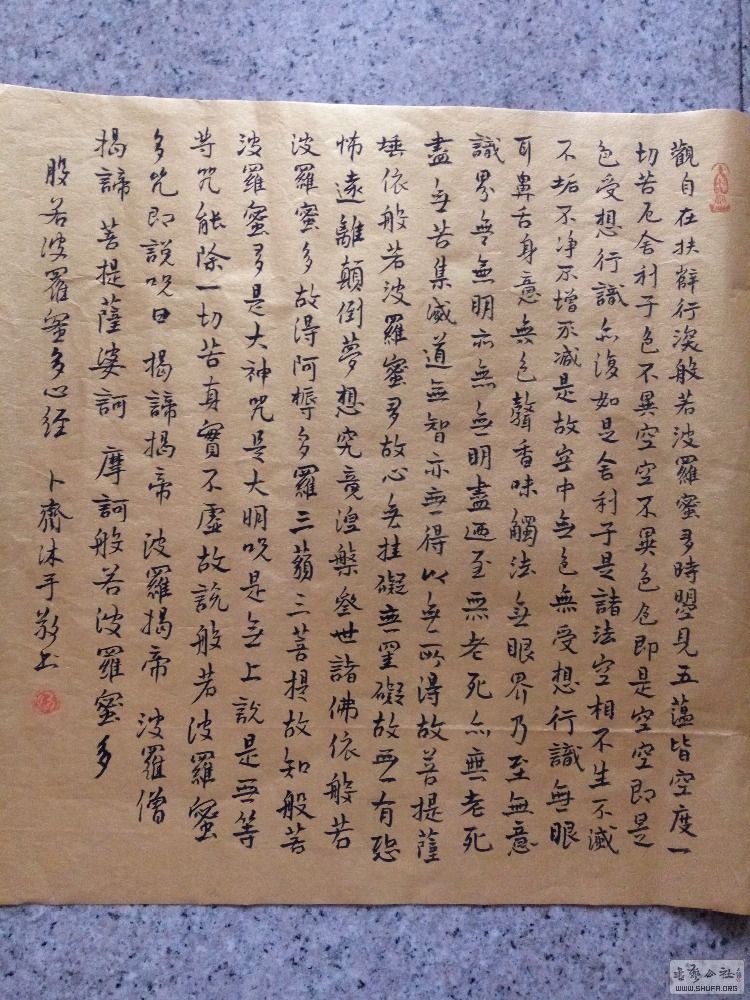 觀自在扶薜行深般若波羅蜜多時曌見五蕰皆空度一
切苦厄舍利子色不異空空不異色色即是空空即是
色受想行識亦復如是舍利子是諸法空相不生不滅
不垢不净不增不减是故空中無色無受想行識無眼
耳鼻舌身意無色聲香味觸法無眼界乃至無意
識界無無明亦無無明盡迺至無老死亦無老死
盡無苦集滅道無智亦無得以無所得故菩提薩
埵依般若波羅蜜多故心無挂礙無罣礙故無有恐
怖遠離顛倒夢想究竟涅槃叄世諸佛依般若
波羅蜜多故得阿耨多羅三藐三菩提故知般若
波羅蜜多是大神咒是大明呪是無上說是無等
等咒能除一切苦真實不虛故說般若波羅蜜
多咒即說呪曰 揭諦揭帝 波羅揭帝 波羅僧
揭諦 菩提薩婆訶 摩訶般若波羅蜜多
般若波羅蜜多心經 卜齋沐手敬书
WWW.SHUFA.ORG